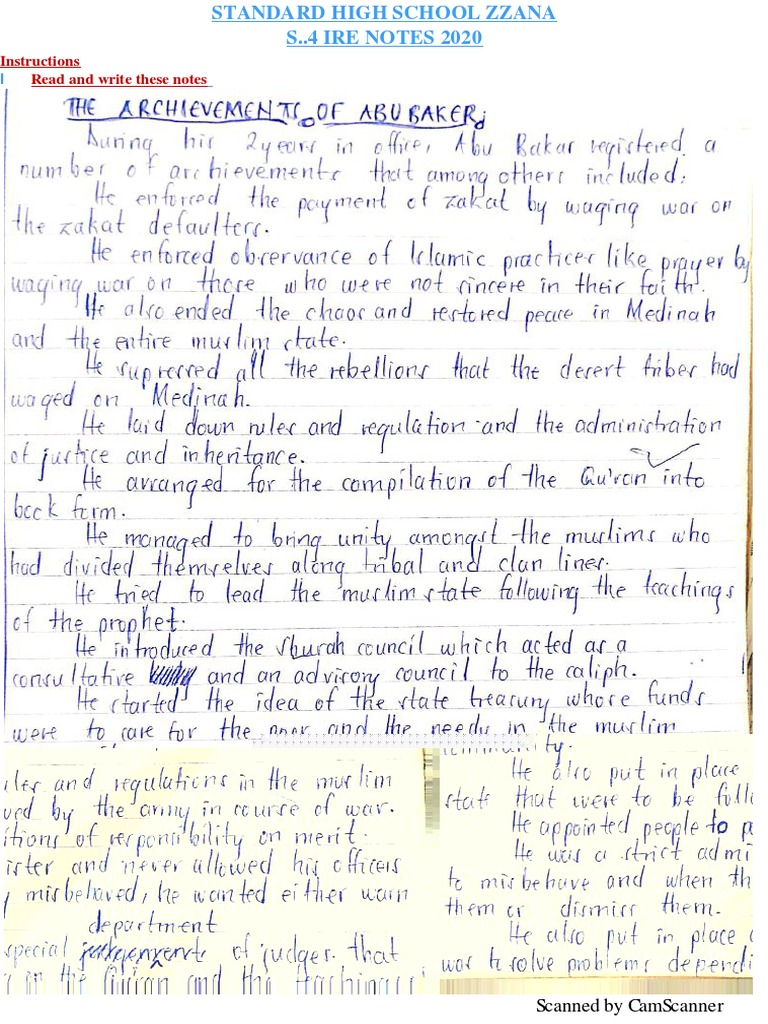 STANDARD HIGH SCHOOL ZZANA
S..4 IRE NOTES 2020
Instructions
I Read and write these notes
THE ARCHIEVEMENTS OF ABU BAKER;
During his 2 years in office, Abu Bakar registered a
number of archievements that among others included;
He enforced the payment of zakat by waging war on
the zakat defaulters.
He enforced observance of Islamic practices like prayer by
waging war on those who were not sincere in their faith.
He also ended the chaos and restored peace in Medinah
and the entire muslim state.
He supressed all the rebellions that the desert tribes had
waged on Medinah.
He laid down rules and regulation and the administration
of justice and inheritance.
He arranged for the compilation of the Qu'ran into
book form.
He managed to bring unity amongst the muslims who
had divided themselves along tribal and clan lines.
He tried to lead the muslim state following the teachings
of the prophet.
He introduced the shurah council which acted as a
consultative and an advisory council to the caliph.
He started the idea of the state treasury whose funds
were to care for the poor and the needs in the muslim
ules and regulations in the muslim
ved by the army in course of war.
itions of responsibility on merit.
ister and never allowed his officers
misbehaved, he wanted either warn
department
special of judges that
in the Quran and the teachings
ty.
He also put in place
state that were to be foll
He appointed people to p
He was a strict admi
to misbehave and when th
them or dismiss them.
He also put in place
was to solve problems dependi
Scanned by CamScanner